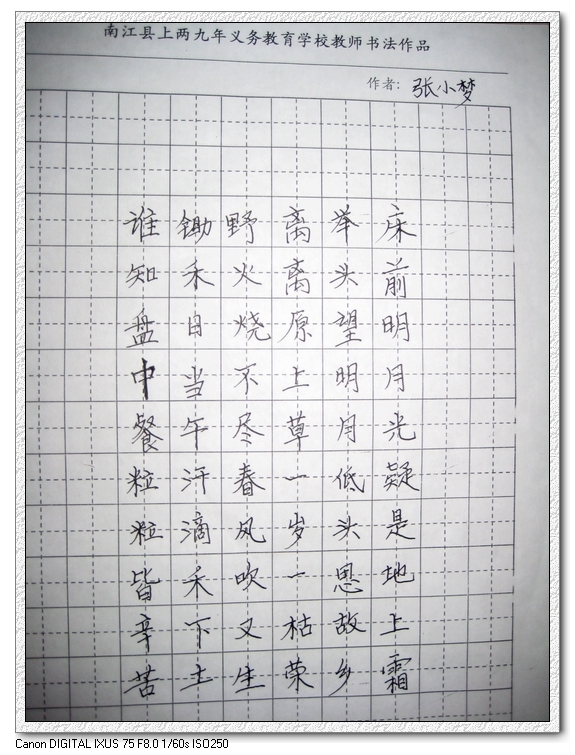 南江县上两九年义务教育学校教师书法作品
作者：张小梦
床前明月光疑是地上霜
举头望明月低头思故乡
离离原上草一岁一枯荣
野火烧不尽春风吹又生
锄禾日当午汗滴禾下土
谁知盘中餐粒粒皆辛苦
Canon DIGITAL IXUS 75 F8.0 1/60s ISO250